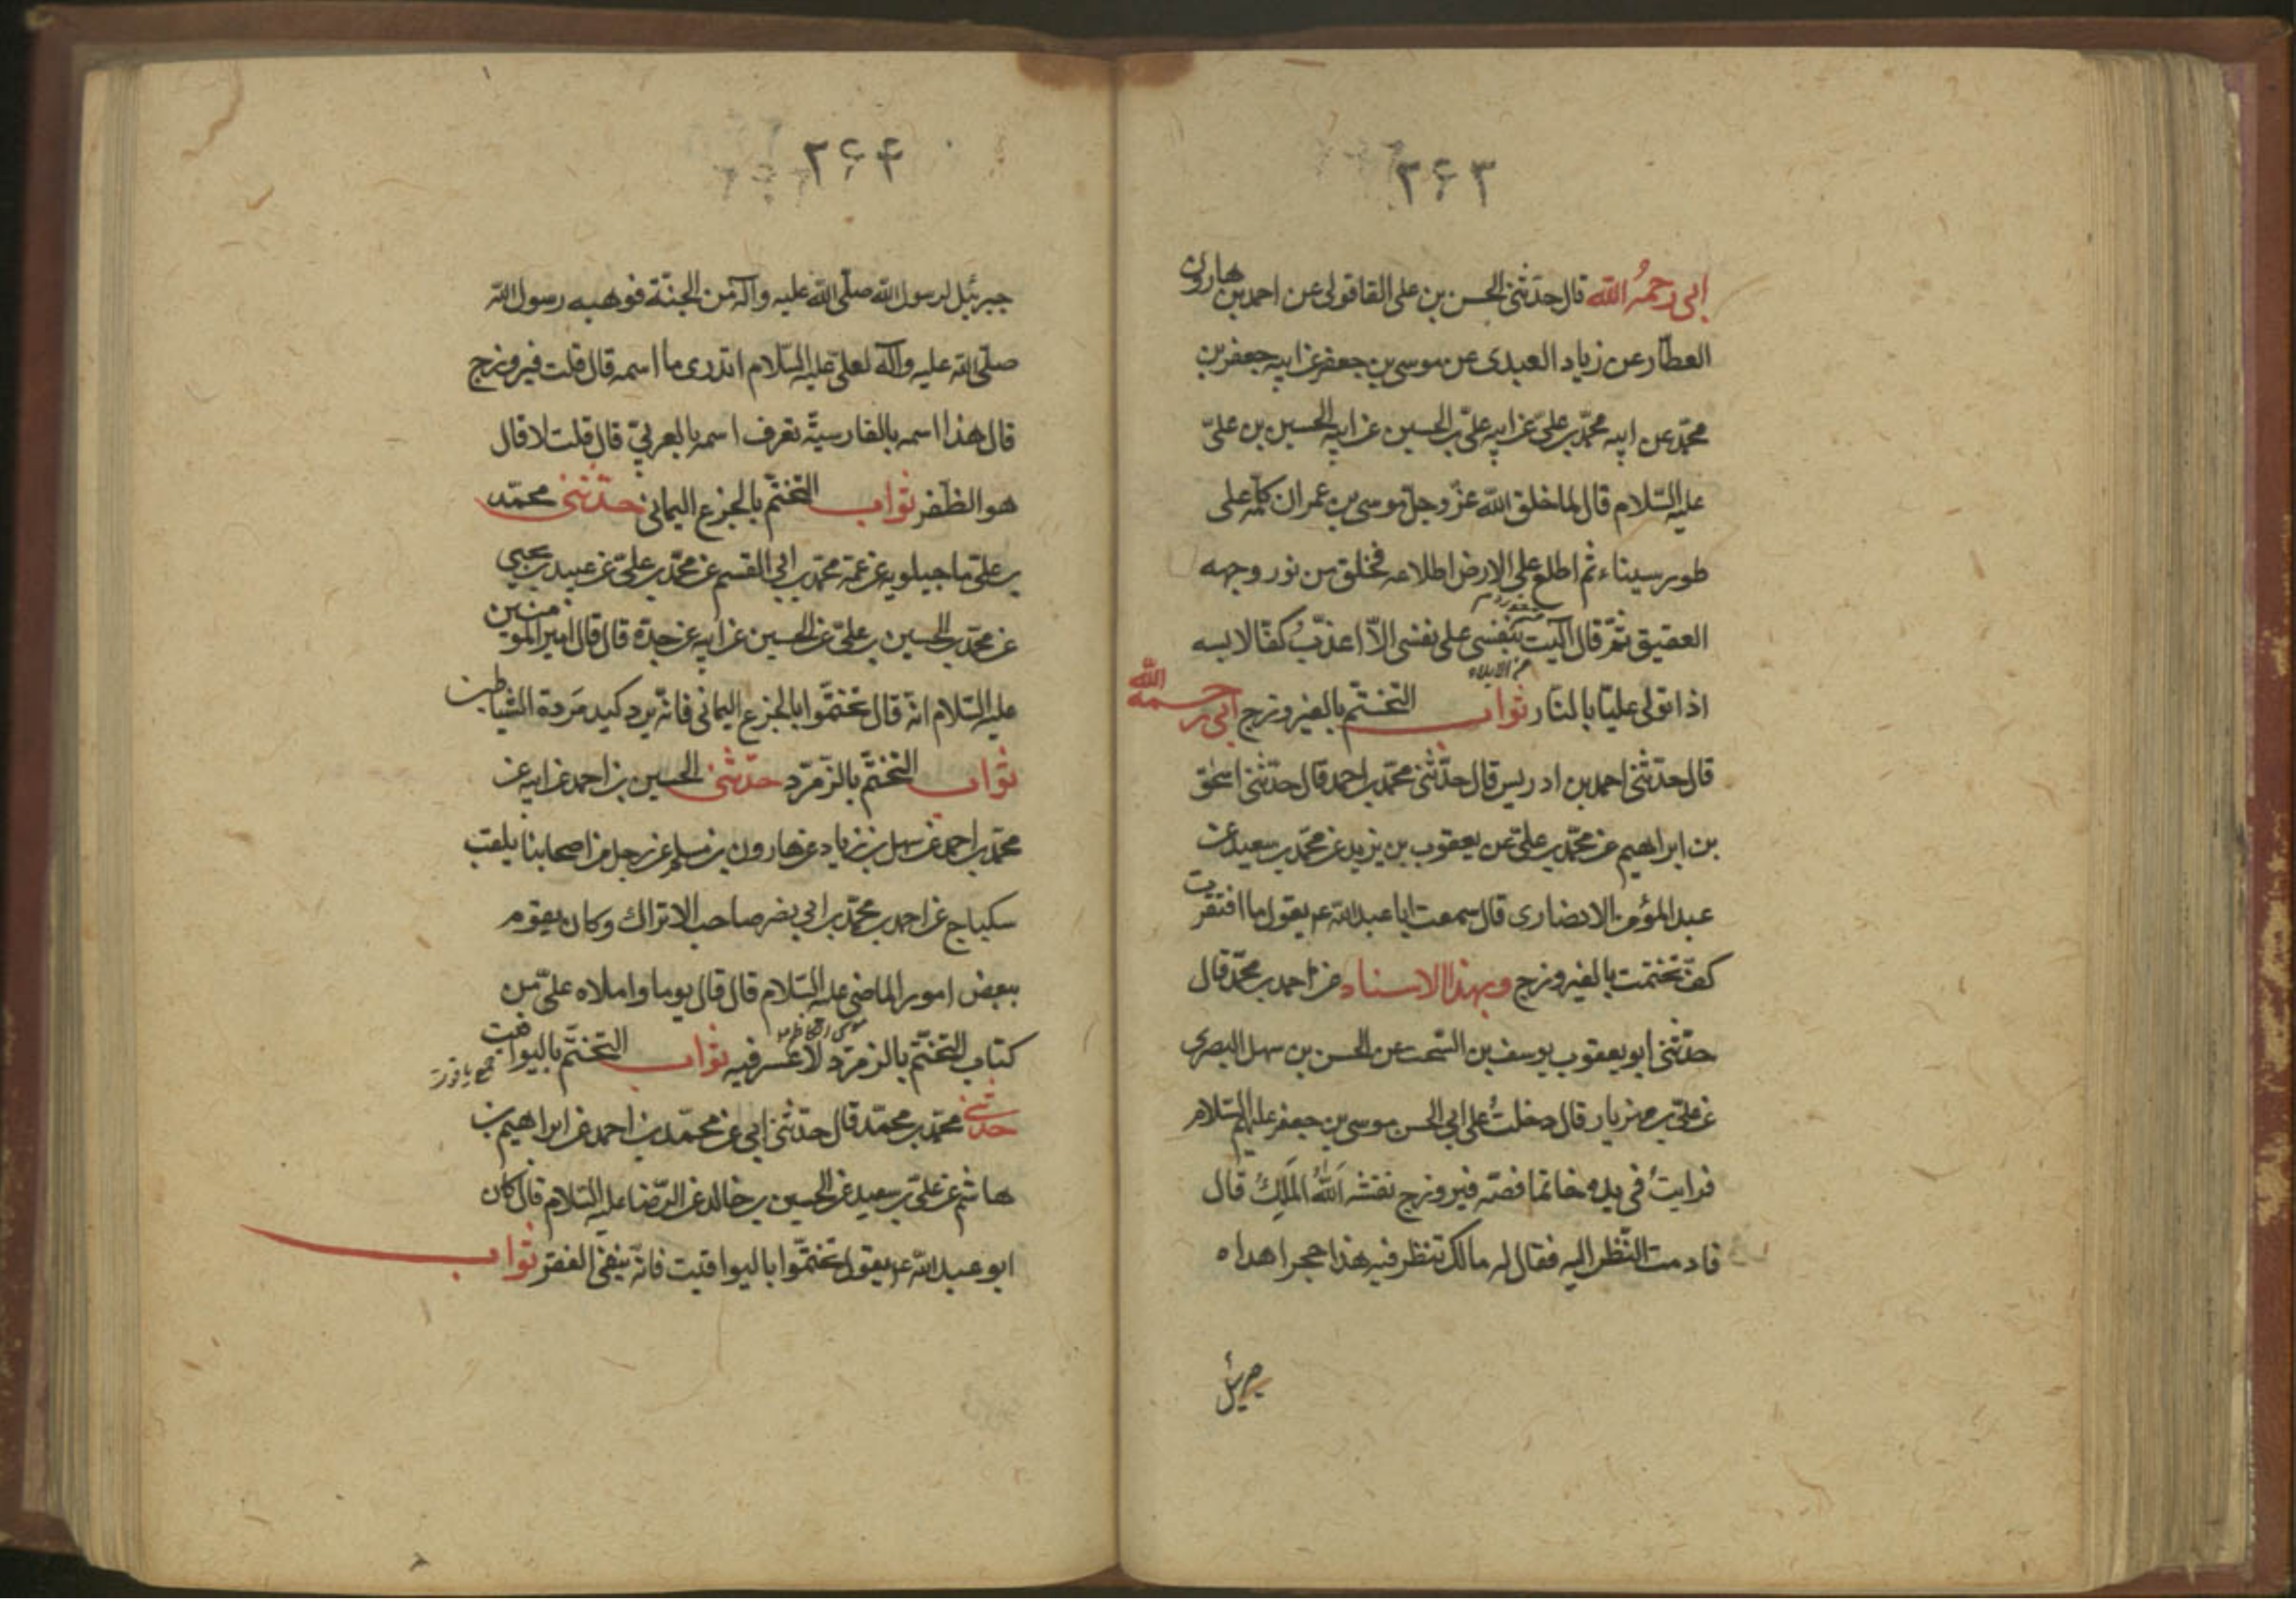 ۲۶۳
ابی رحمه الله قال حدثنی الحسن بن علی القاقولی عن احمد بن هارون
العطار عن زیاد العبدی عن موسی بن جعفر عن ابیه جعفر بن
محمد عن ابیه محمد بن علی عن ابیه علی بن الحسین عن ابیه الحسین بن علی
علیه السلام قال لما خلق الله عز وجل موسی بن عمران کلمه علی
طور سیناء ثم اطلع علی الارض اطلاعه فخلق من نور وجهه
العقیق ثم قال آلیت بنفسی علی نفسی الا اعذب کفا لابسه
من الایلاء
اذا تولی علیا بالنار ثواب التختم بالفیروزج ابی رحمه الله
قال حدثنی احمد بن ادریس قال حدثنی محمد بن احمد قال حدثنی اسحق
بن ابراهیم عن محمد بن علی عن یعقوب بن یزید عن محمد بن سعید عن
عبد المؤمن الانصاری قال سمعت ابا عبد الله عم یقول ما افتقرت
کف تختمت بالفیروزج وبهذا الاسناد عن احمد بن محمد قال
حدثنی ابو یعقوب یوسف بن السخت عن الحسن بن سهل البصری
عن علی بن مهزیار قال دخلت علی ابی الحسن موسی بن جعفر علیهم السلام
فرایت فی یده خاتما فصه فیروزج نقشه الله الملک قال
فادمت النظر الیه فقال له مالک تنظر فیه هذا حجر اهداه
جبرئیل
۲۶۴
جبرئیل لرسول الله صلی الله علیه وآله من الجنة فوهبه رسول الله
صلی الله علیه وآله لعلی علیه السلام اتدری ما اسمه قال قلت فیروزج
قال هذا اسمه بالفارسیة تعرف اسمه بالعربی قال قلت لا قال
هو الظفر ثواب التختم بالجزع الیمانی حدثنی محمد
بن علی ماجیلویه عن عمه محمد بن ابی القسم عن محمد بن علی عن عبید بن یحیی
عن محمد بن الحسین بن علی عن الحسین عن ابیه عن جده قال قال امیر المومنین
علیه السلام انه قال تختموا بالجزع الیمانی فانه یرد کید مردة الشیاطین
ثواب التختم بالزمرد حدثنی الحسین بن احمد عن ابیه عن
محمد بن احمد عن سهل بن زیاد عن هارون بن مسلم عن رجل من اصحابنا یلقب
سکباج عن احمد بن محمد بن ابی نصر صاحب الاتراک وکان یقوم
ببعض امور الماضی علیه السلام قال قال یوما واملاه علی من
کتاب التختم بالزمرد لا عسر فیه ثواب التختم بالیواقیت
جمع یاقوت
حدثنی محمد بن محمد قال حدثنی ابی عن محمد بن احمد عن ابراهیم بن
هاشم عن علی بن سعید عن الحسین بن خالد عن الرضا علیه السلام قال کان
ابو عبد الله عم یقول تختموا بالیواقیت فانه ینفی الفقر ثواب